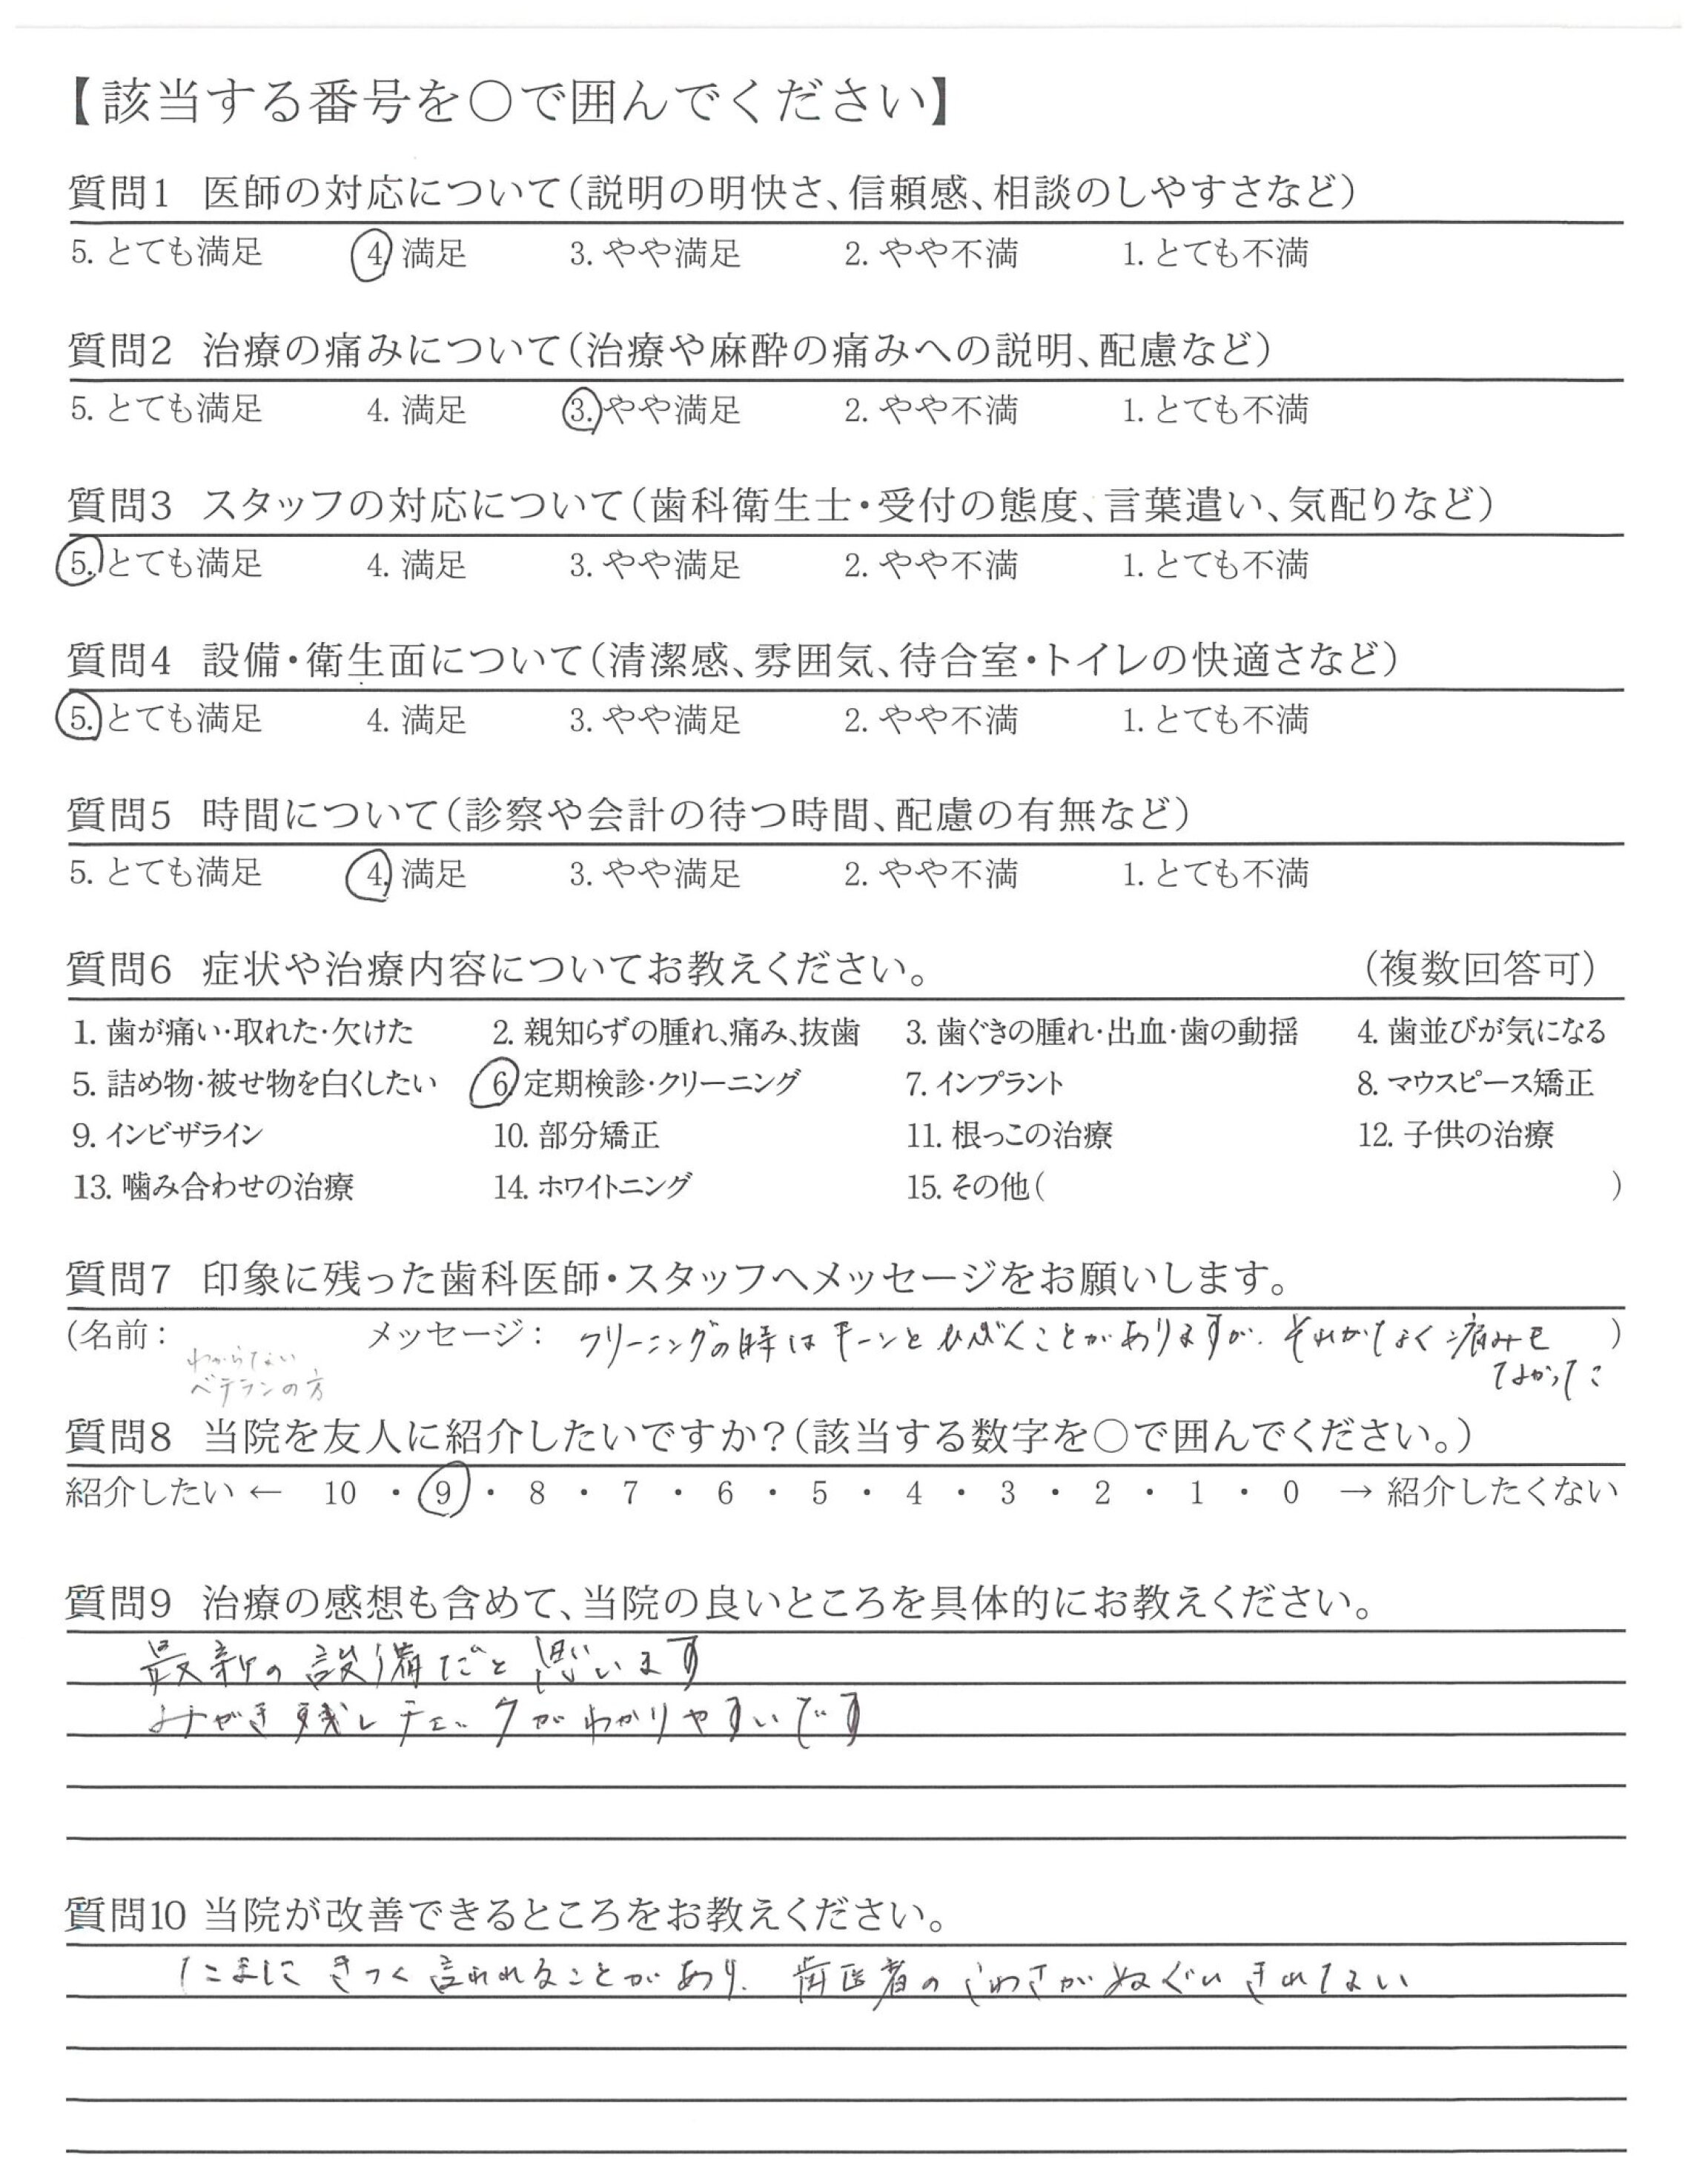 【該当する番号を○で囲んでください】
質問1 医師の対応について(説明の明快さ、信頼感、相談のしやすさなど)
5. とても満足 4. 満足 3. やや満足 2. やや不満 1. とても不満
質問2 治療の痛みについて(治療や麻酔の痛みへの説明、配慮など)
5. とても満足 4. 満足 3. やや満足 2. やや不満 1. とても不満
質問3 スタッフの対応について(歯科衛生士・受付の態度、言葉遣い、気配りなど)
5. とても満足 4. 満足 3. やや満足 2. やや不満 1. とても不満
質問4 設備・衛生面について(清潔感、雰囲気、待合室・トイレの快適さなど)
5. とても満足 4. 満足 3. やや満足 2. やや不満 1. とても不満
質問5 時間について(診察や会計の待つ時間、配慮の有無など)
5. とても満足 4. 満足 3. やや満足 2. やや不満 1. とても不満
質問6 症状や治療内容についてお教えください。 (複数回答可)
1. 歯が痛い・取れた・欠けた 2. 親知らずの腫れ、痛み、抜歯 3. 歯ぐきの腫れ・出血・歯の動揺 4. 歯並びが気になる
5. 詰め物・被せ物を白くしたい 6. 定期検診・クリーニング 7. インプラント 8. マウスピース矯正
9. インビザライン 10. 部分矯正 11. 根っこの治療 12. 子供の治療
13. 噛み合わせの治療 14. ホワイトニング 15. その他( )
質問7 印象に残った歯科医師・スタッフへメッセージをお願いします。
(名前: メッセージ: クリーニングの時はキーンとひびくことがありますが、それがなく痛みも )
わからない なかった
ベテランの方
質問8 当院を友人に紹介したいですか?(該当する数字を○で囲んでください。)
紹介したい ← 10 ・ 9 ・ 8 ・ 7 ・ 6 ・ 5 ・ 4 ・ 3 ・ 2 ・ 1 ・ 0 → 紹介したくない
質問9 治療の感想も含めて、当院の良いところを具体的にお教えください。
最新の設備だと思います
みがき残しチェックがわかりやすいです
質問10 当院が改善できるところをお教えください。
たまにきつく言われることがあり、歯医者のこわさがぬぐいきれない